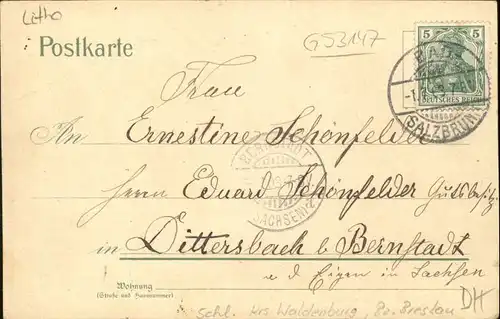 Litho
Postkarte
GS3147
5 5
DEUTSCHES REICH
BAD
(SALZBRUNN)
Frau
An Ernestine Schönfelder
BERNSTADT
SACHSEN
Herrn Eduard Schönfelder Gutsbesitz
in Dittersbach b Bernstadt
a d Eigen in Sachsen
Wohnung
(Straße und Hausnummer)
Schl. Krs Waldenburg, Bz. Breslau
DH